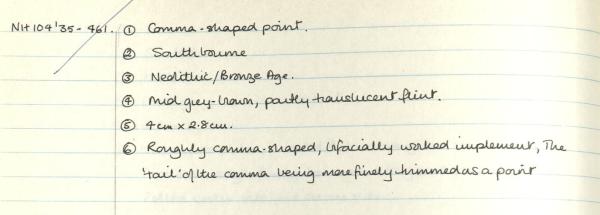 NH104'35-461. ① Comma-shaped point.
② Southbourne
③ Neolithic/Bronze Age.
④ Mid grey-brown, partly translucent flint.
⑤ 4cm x 2.8cm.
⑥ Roughly comma-shaped, bifacially worked implement, The
'tail' of the comma being more finely trimmed as a point